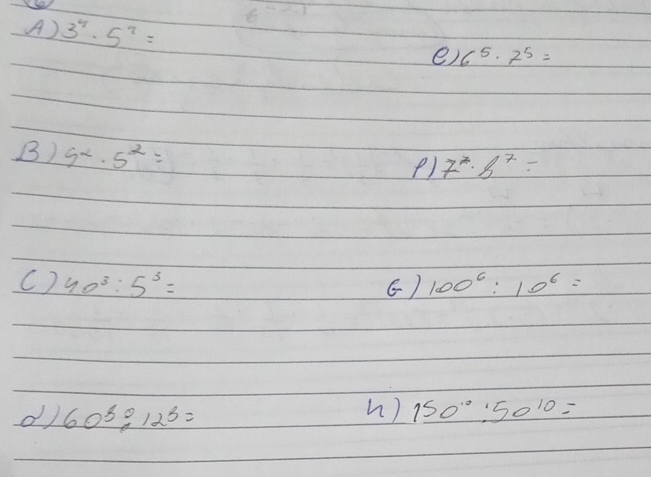 A) 3⁷ · 5⁷ =
e) 6⁵ · 7⁵ =
B) 4² · 5² =
f) 7⁷ · 8⁷ =
C) 40³ : 5³ =
G) 100⁶ : 10⁶ =
d) 60⁵ : 12⁵ =
h) 150¹⁰ : 50¹⁰ =